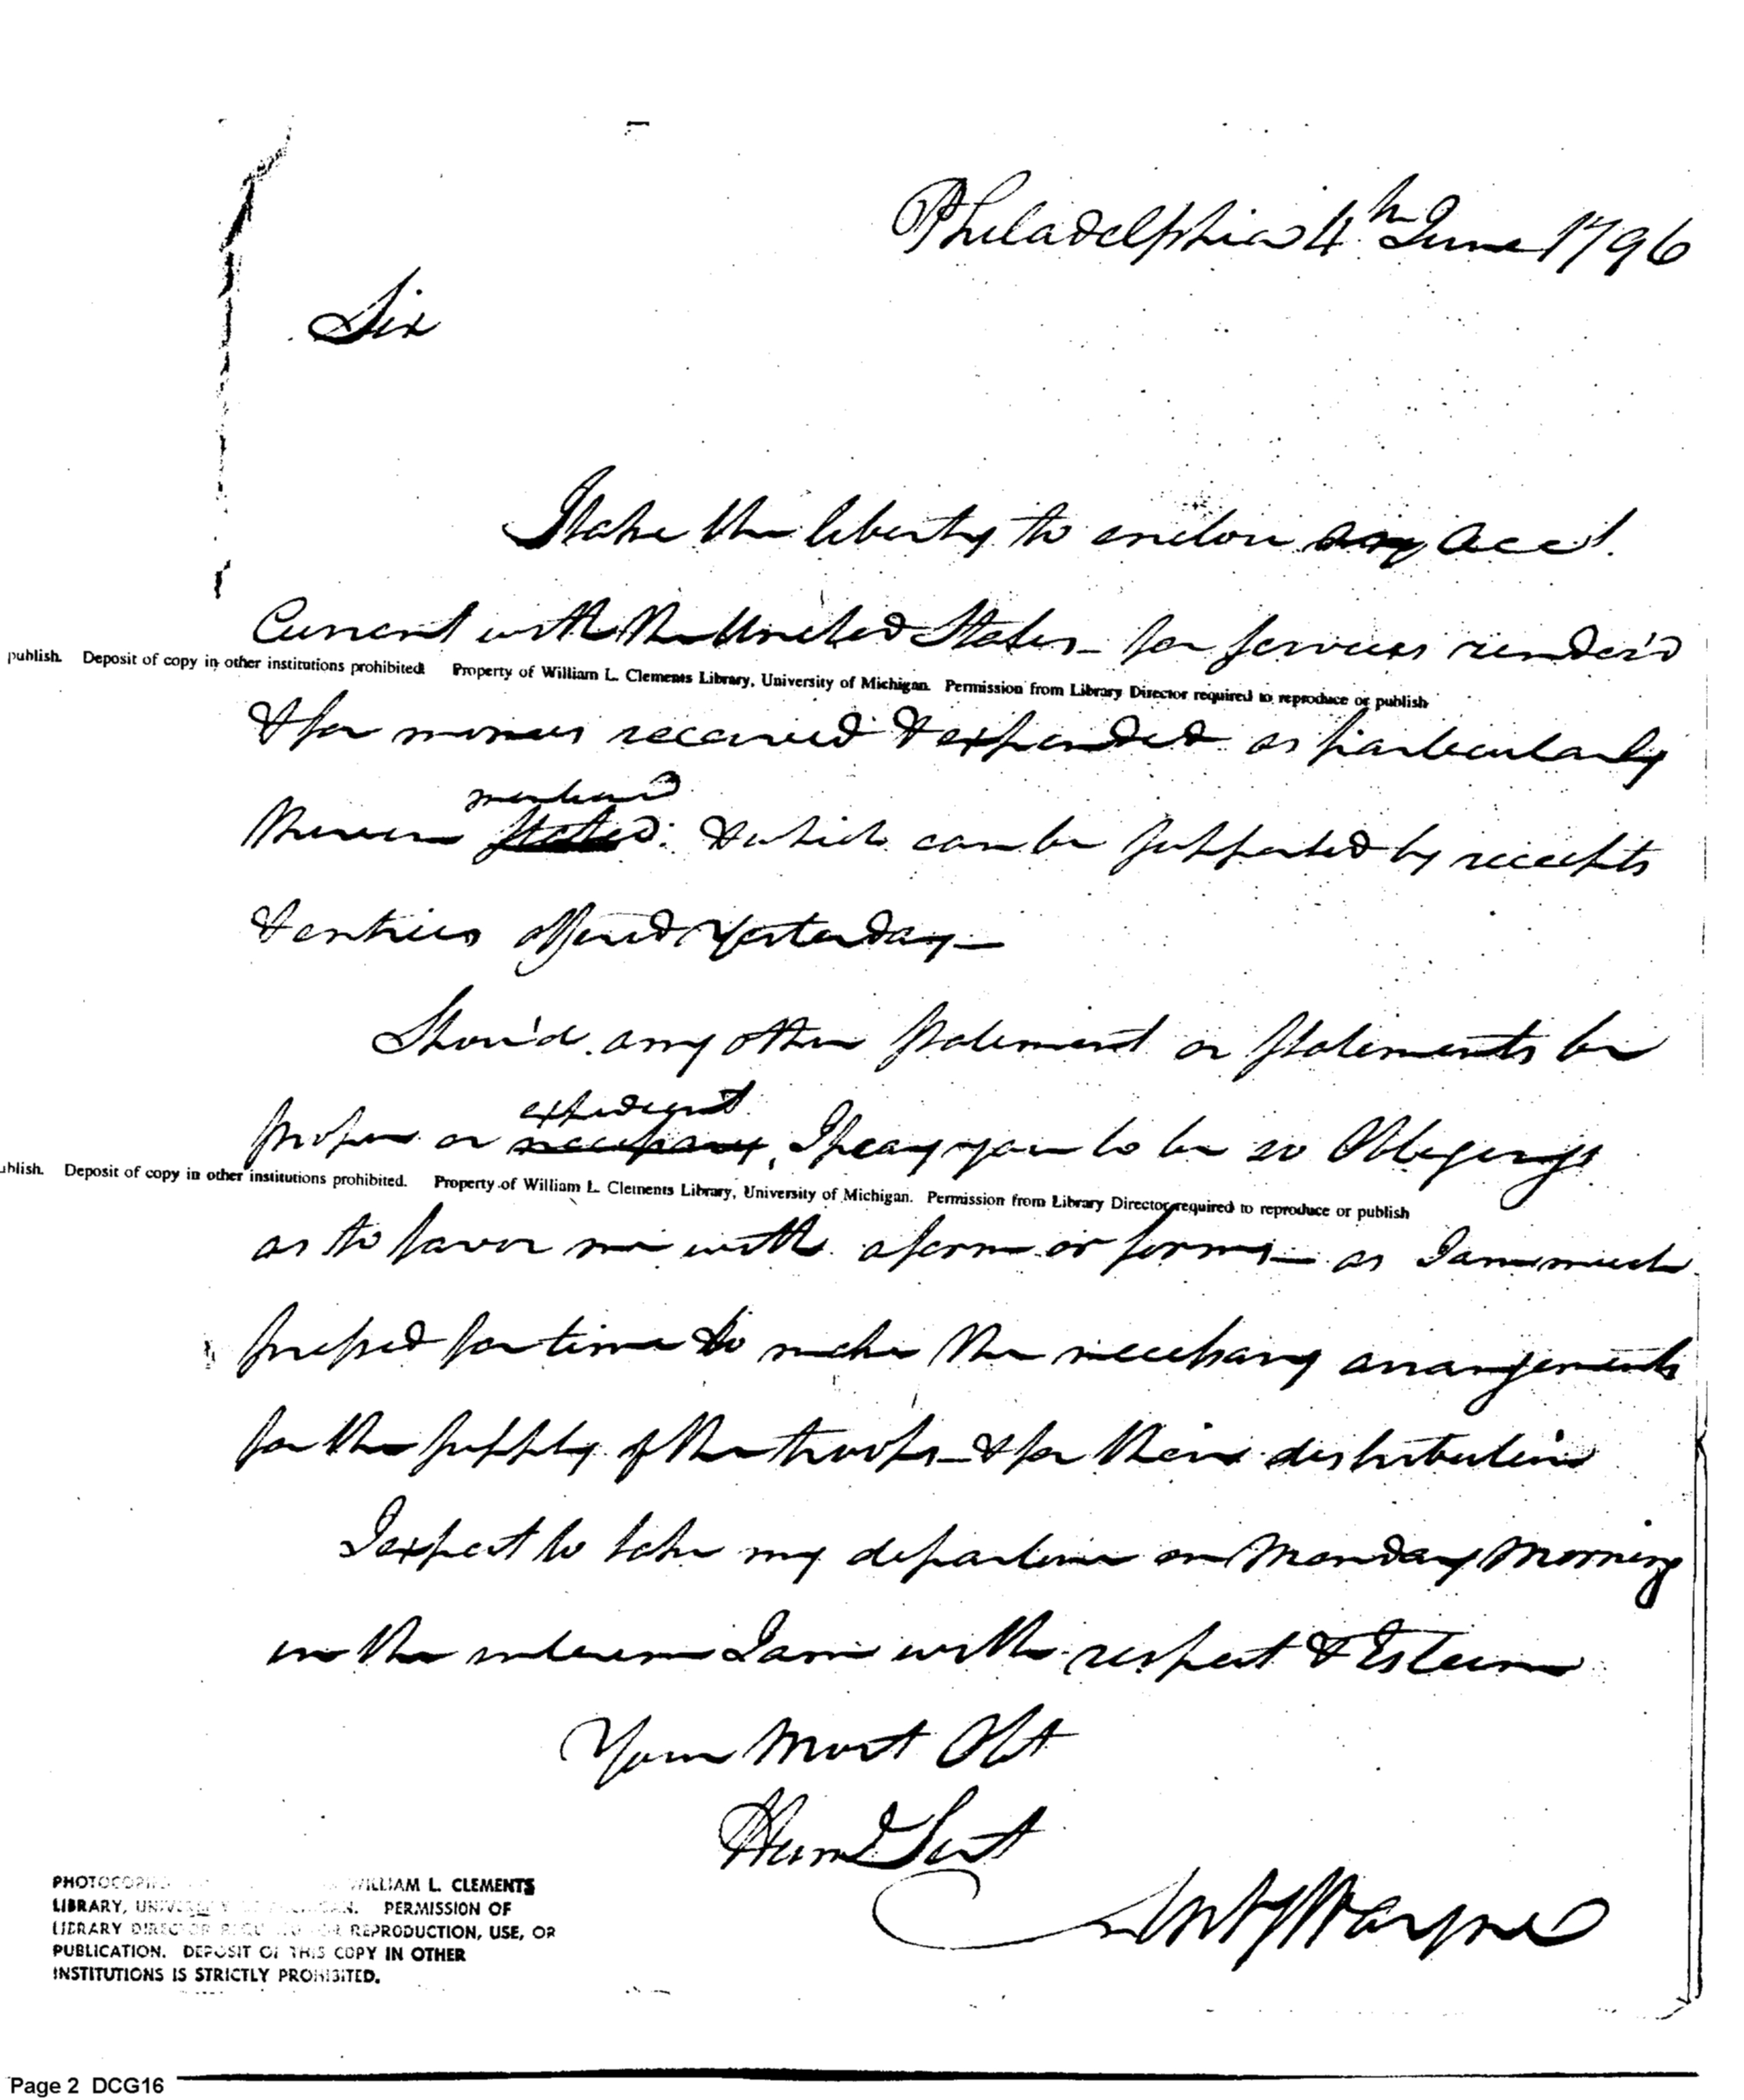 Philadelphia 4th June 1796
Sir
I take the liberty to enclose my Acct.
Current with the United States - for services render'd
publish. Deposit of copy in other institutions prohibited Property of William L. Clements Library, University of Michigan. Permission from Library Director required to reproduce or publish
& for monies received & expended as particularly
mentiond
therein stated: & which can be supported by receipts
& entries offered Yesterday—
Shou'd any other statement or statements be
expedient
proper or necessary, I pray you to be so Obligeing
ublish. Deposit of copy in other institutions prohibited. Property of William L. Clements Library, University of Michigan. Permission from Library Director required to reproduce or publish
as to favor me with a form or forms— as I am much
pressed for time to make the necessary arrangements
for the supply of the troops - & for their distribution
I expect to take my departure on Monday Morning
in the interim I am with respect & Esteem
Your Most Obt
Huml Sert
Anty Wayne
PHOTOCOPIED WILLIAM L. CLEMENTS
LIBRARY, UNIVERSITY OF MICHIGAN. PERMISSION OF
LIBRARY DIRECTOR REQUIRED FOR REPRODUCTION, USE, OR
PUBLICATION. DEPOSIT OF THIS COPY IN OTHER
INSTITUTIONS IS STRICTLY PROHIBITED.
Page 2 DCG16